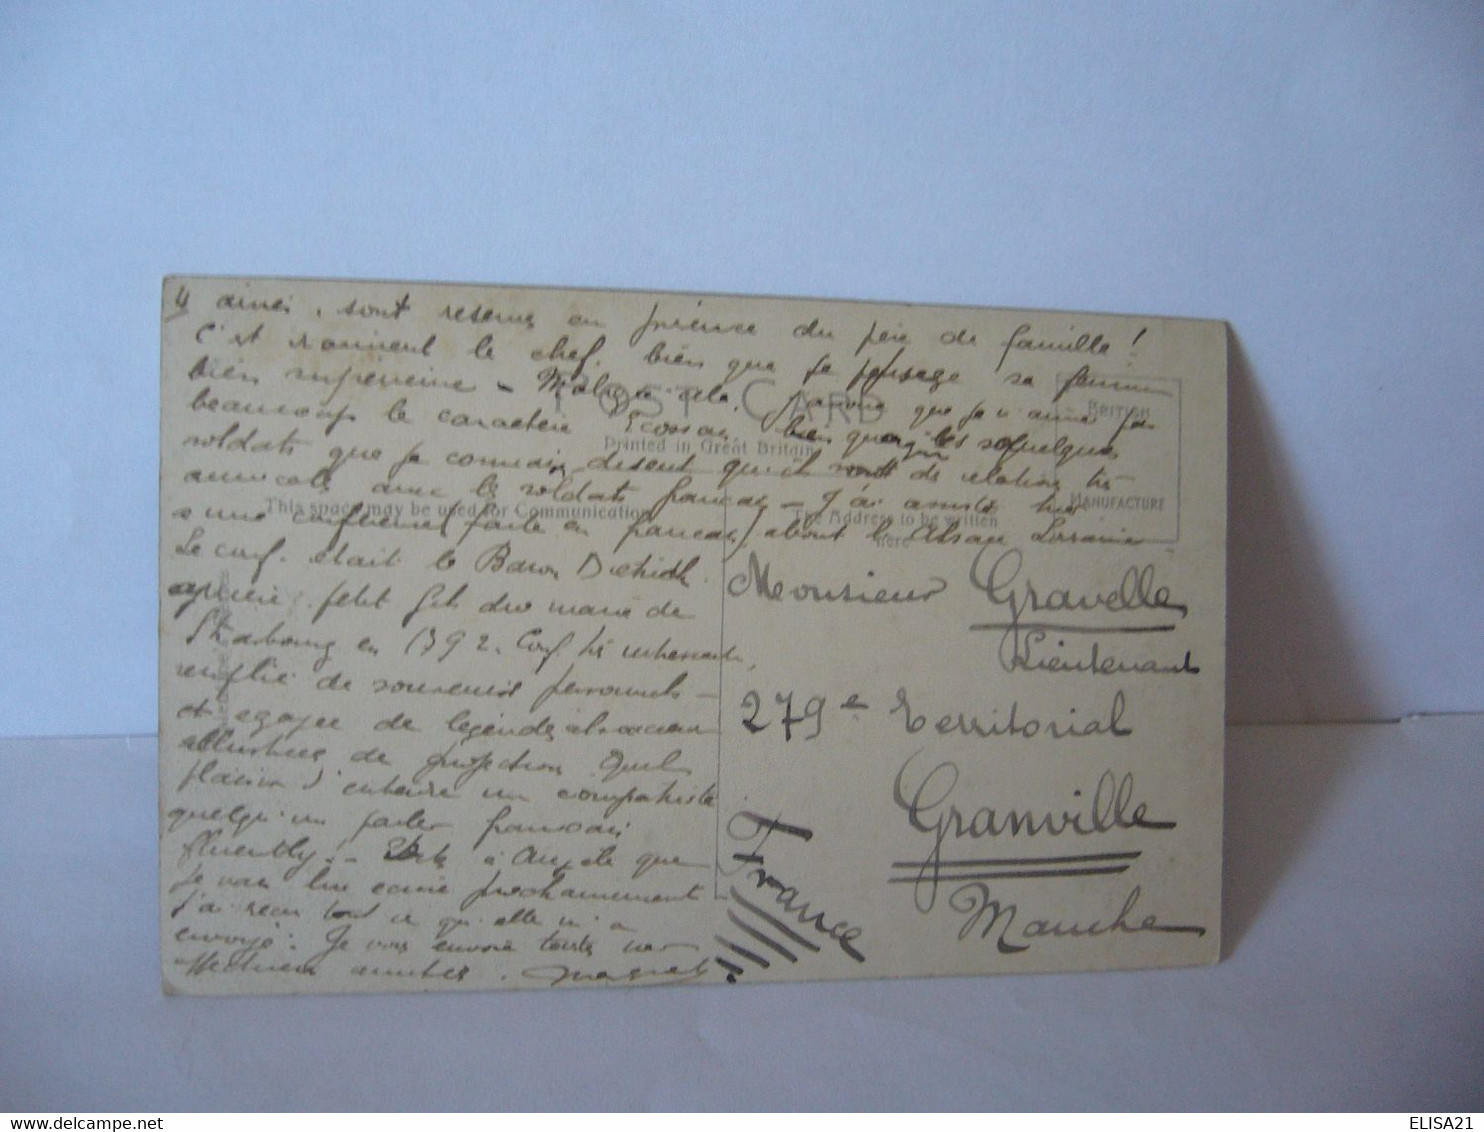 4 ainsi, sont reservés en présence du père de famille !
C'est vraiment le chef, bien que je pense sa femme
bien supérieure - Malgré cela, j'avoue que je n'aime pas
beaucoup le caractère Ecossais, bien que quelques
soldats que je connais, disent qu'ils sont de relations très
amicales avec les soldats français - J'ai assisté hier
à une conférence (faite en français) about l'Alsace Lorraine
Le conf. était le Baron Dietrich
arrière petit fils du maire de
Strasbourg en 1792. Conf. très intéressante,
remplie de souvenirs personnels -
et égayée de légendes alsaciennes
illustrées de projections Quel
plaisir d'entendre un compatriote
quelqu'un parler français
fluently! - Dites à Angèle que
je vais lui écrire prochainement
j'ai reçu tout ce qu'elle m'a
envoyé. Je vous envoie toutes mes
affectueuses amitiés.
POST CARD
Printed in Great Britain
This space may be used for Communication
The Address to be written
here
BRITISH
MANUFACTURE
Monsieur Gravelle
Lieutenant
279e Territorial
Granville
Manche
France
ELISA21
delcampe.com